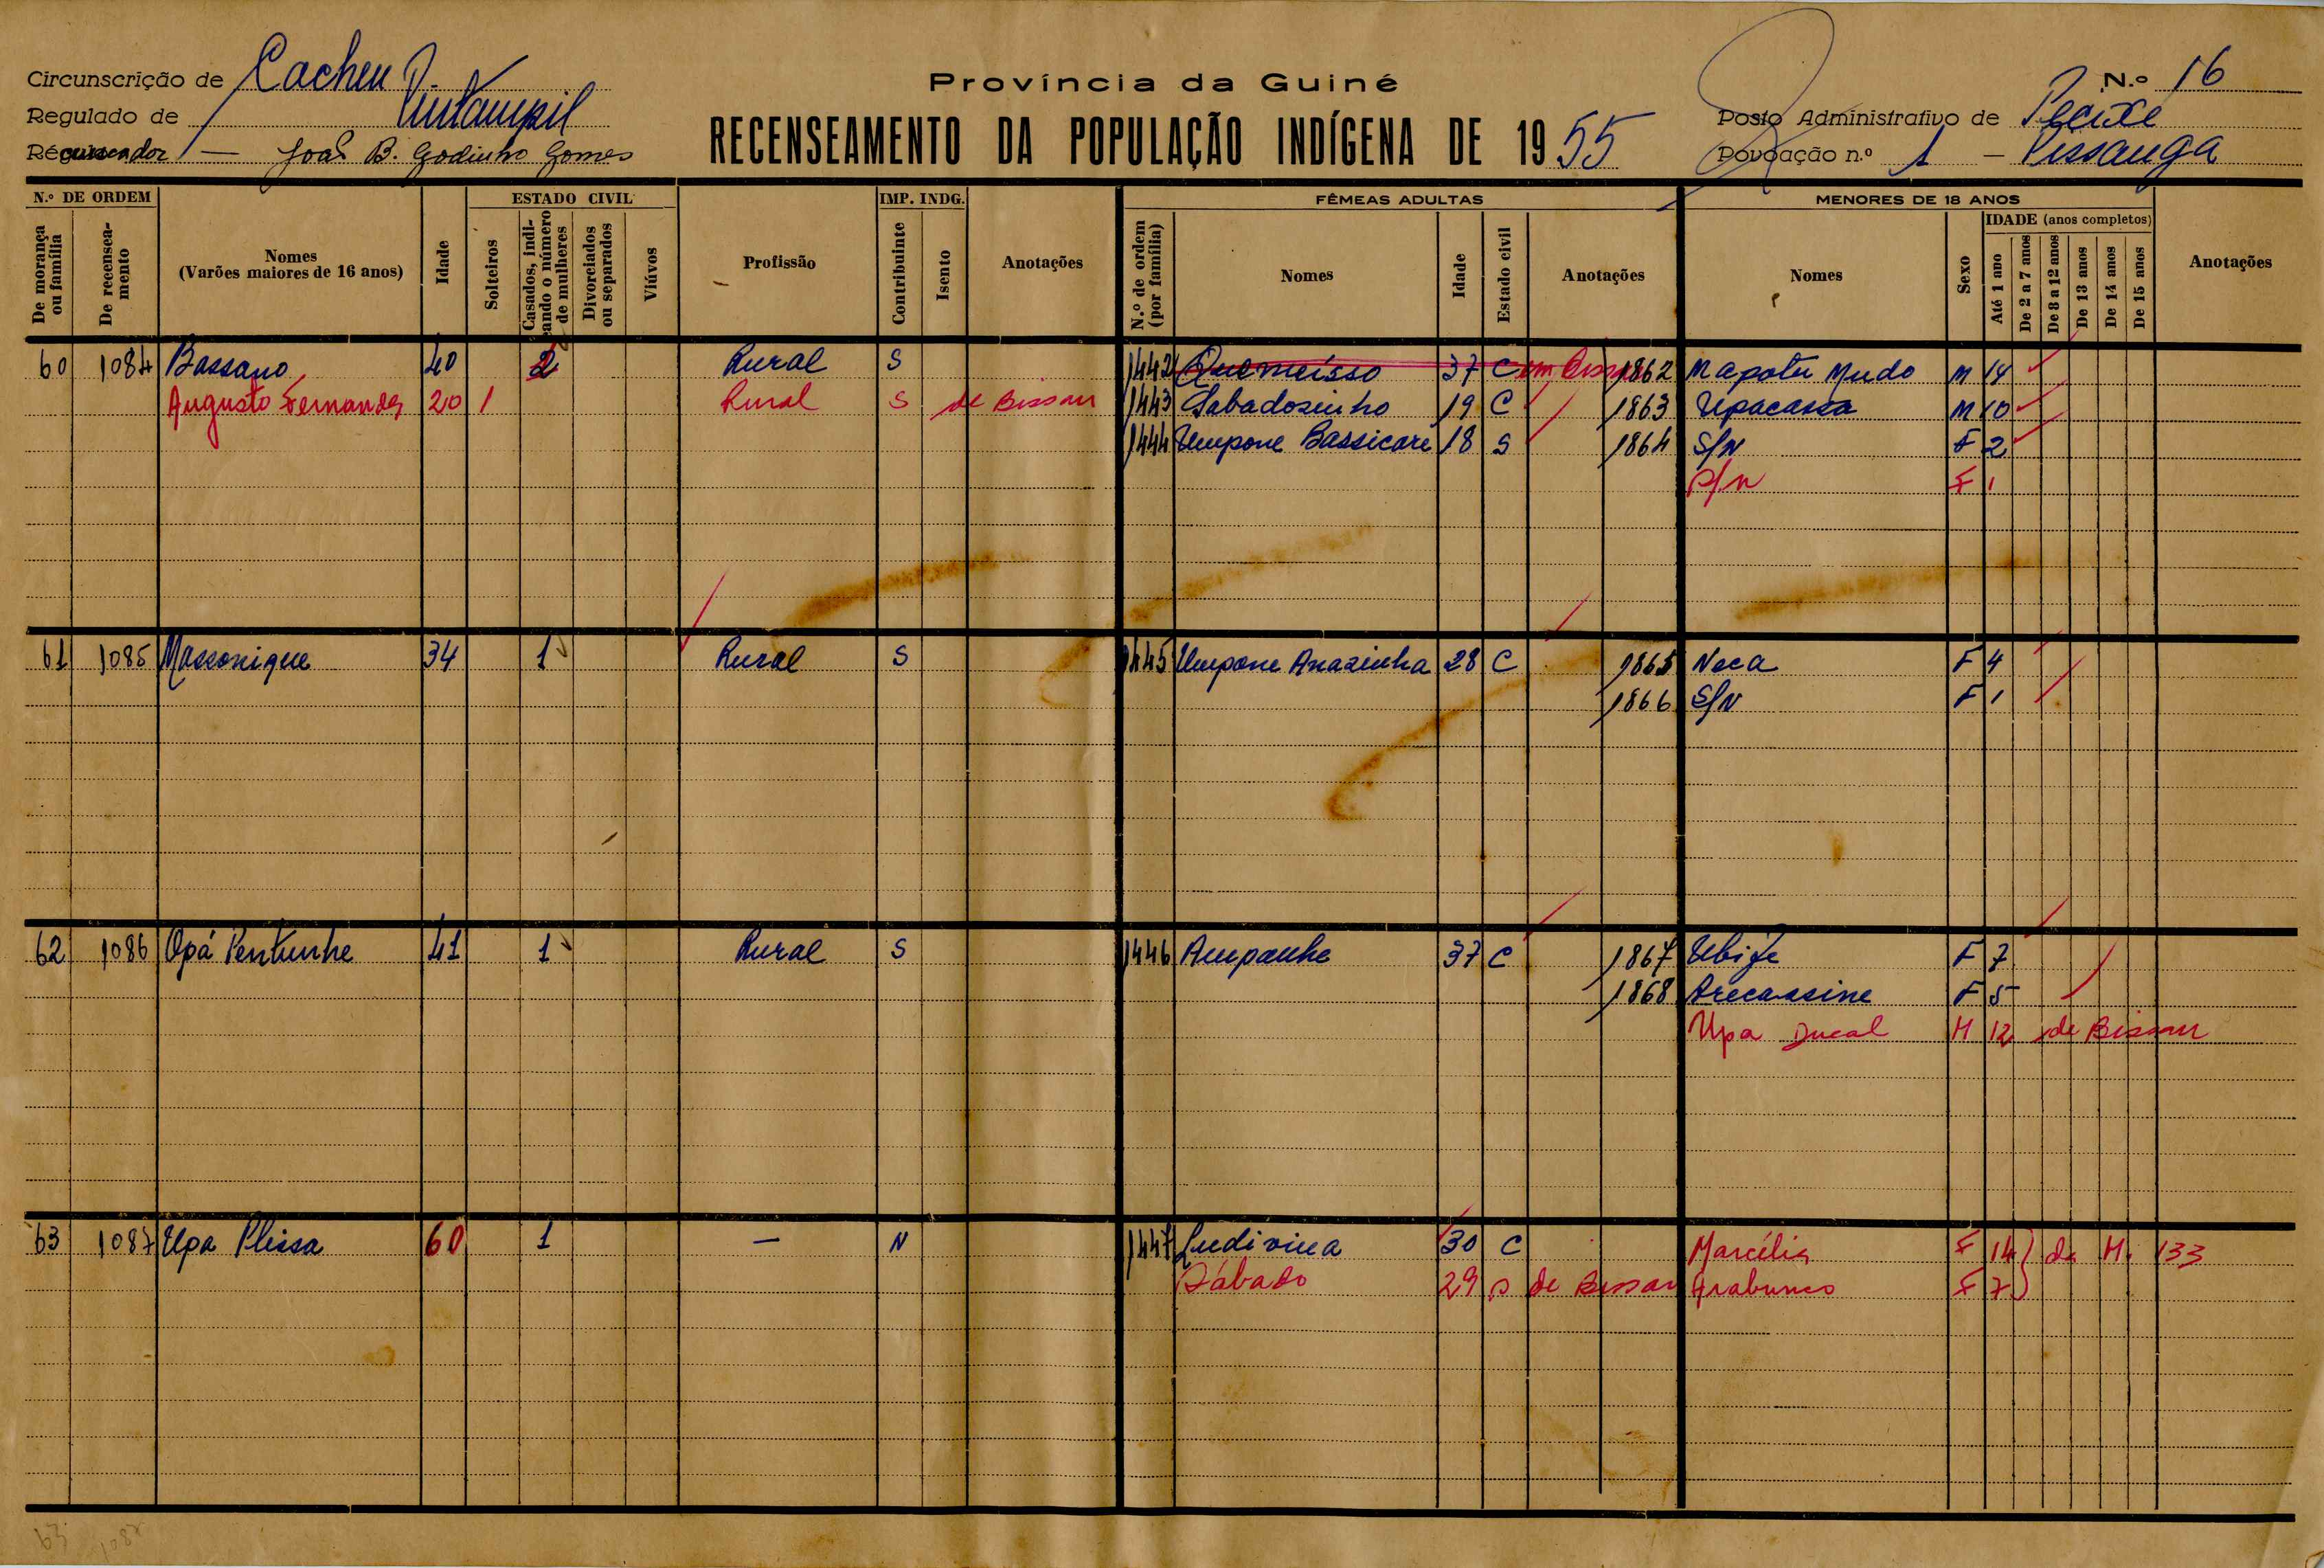 Província da Guiné
RECENSEAMENTO DA POPULAÇÃO INDÍGENA DE 1955
Circunscrição de Cacheu
Regulado de
Recenseador — João B. Godinho Gomes
N.º 16
Posto Administrativo de Pecixe
Povoação n.º 1 — Pissanga
N.º DE ORDEM
De morança ou família
De recenseamento
Nomes
(Varões maiores de 16 anos)
Idade
ESTADO CIVIL
Solteiros
Casados, indicando o número de mulheres
Divorciados ou separados
Viúvos
Profissão
IMP. INDG.
Contribuinte
Isento
Anotações
FÊMEAS ADULTAS
N.º de ordem (por família)
Nomes
Idade
Estado civil
Anotações
MENORES DE 18 ANOS
Nomes
Sexo
IDADE (anos completos)
Até 1 ano
De 2 a 7 anos
De 8 a 12 anos
De 13 anos
De 14 anos
De 15 anos
Anotações
60 1084 Bassano 40 2 Rural S 1442 Quemeisso 37 C em Bissau 1862 Mapotu Mudo M 14
Augusto Fernandes 20 1 Rural S de Bissau 1443 Sabadosinho 19 C 1863 Upacassa M 10
1444 Umpone Bassicare 18 S 1864 S/N F 2
S/N F 1
61 1085 Massonique 34 1 Rural S 1445 Umpone Anazinha 28 C 1865 Neca F 4
1866 S/N F 1
62 1086 Opá Pentunhe 41 1 Rural S 1446 Ampanhe 37 C 1867 Ubife F 7
1868 Arecassine F 5
Upa Jucal M 12 de Bissau
63 1087 Upa Plissa 60 1 — N 1447 Ludivina 30 C Marcélia F 14 da M. 133
Sábado 29 S de Bissau Arabunco F 7
63 1087